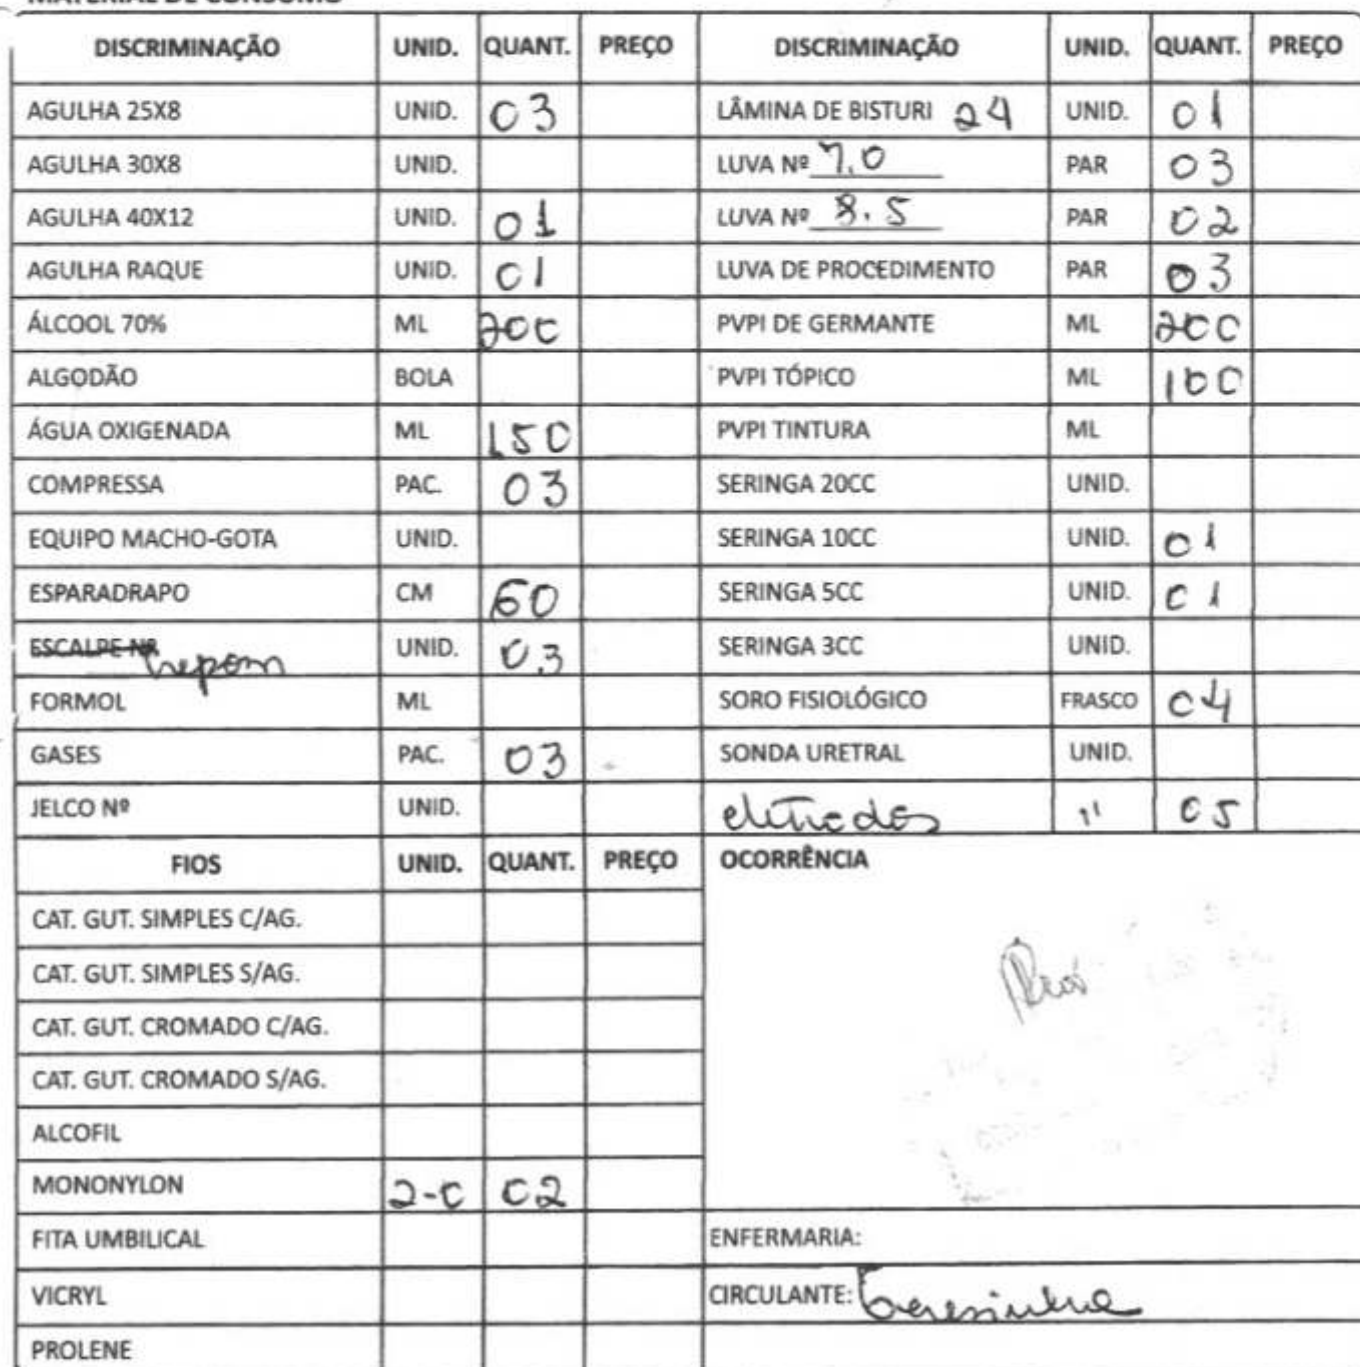 MATERIAL DE CONSUMO
DISCRIMINAÇÃO UNID. QUANT. PREÇO DISCRIMINAÇÃO UNID. QUANT. PREÇO
AGULHA 25X8 UNID. 03 LÂMINA DE BISTURI 24 UNID. 01
AGULHA 30X8 UNID. LUVA Nº 7.0 PAR 03
AGULHA 40X12 UNID. 01 LUVA Nº 8.5 PAR 02
AGULHA RAQUE UNID. 01 LUVA DE PROCEDIMENTO PAR 03
ÁLCOOL 70% ML 200 PVPI DE GERMANTE ML 200
ALGODÃO BOLA PVPI TÓPICO ML 100
ÁGUA OXIGENADA ML 150 PVPI TINTURA ML
COMPRESSA PAC. 03 SERINGA 20CC UNID.
EQUIPO MACHO-GOTA UNID. SERINGA 10CC UNID. 01
ESPARADRAPO CM 60 SERINGA 5CC UNID. 01
ESCALPE Nº UNID. 03 SERINGA 3CC UNID.
FORMOL ML SORO FISIOLÓGICO FRASCO 04
GASES PAC. 03 SONDA URETRAL UNID.
JELCO Nº UNID. eletrodos " 05
FIOS UNID. QUANT. PREÇO OCORRÊNCIA
CAT. GUT. SIMPLES C/AG.
CAT. GUT. SIMPLES S/AG.
CAT. GUT. CROMADO C/AG.
CAT. GUT. CROMADO S/AG.
ALCOFIL
MONONYLON 2-0 02
FITA UMBILICAL ENFERMARIA:
VICRYL CIRCULANTE: Teresinha
PROLENE